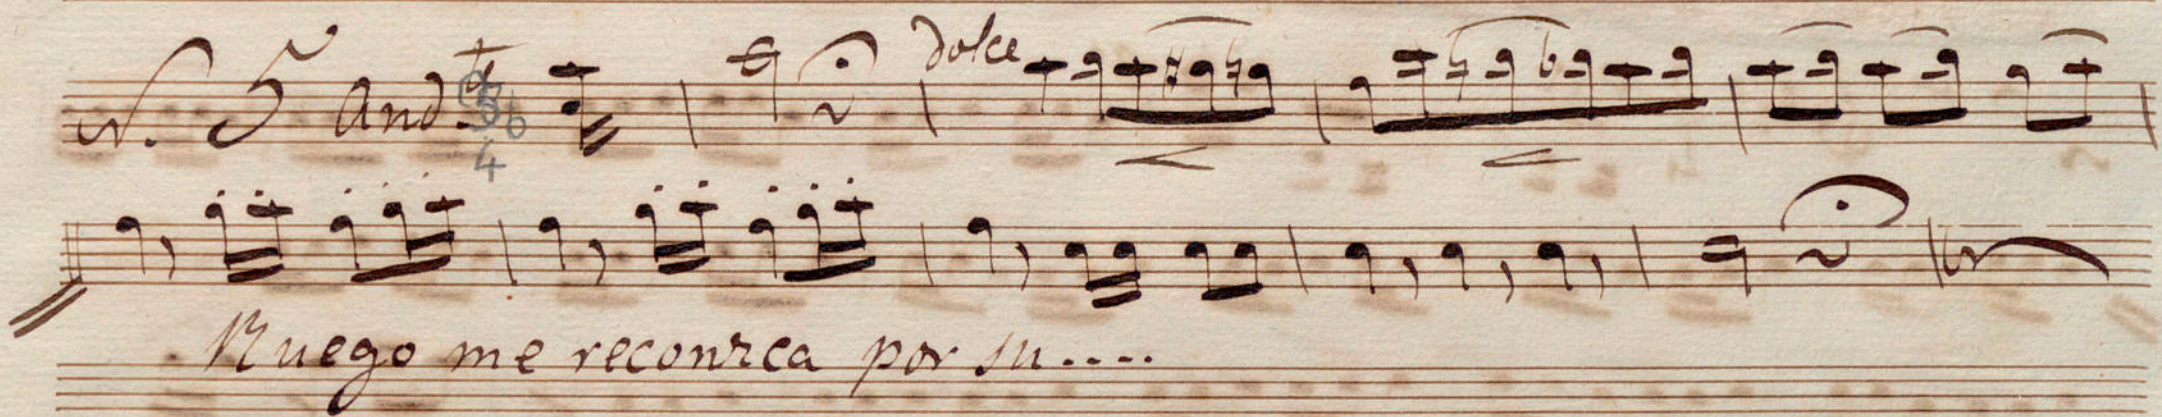 N. 5 And.te
dolce
Ruego me reconzca por su....